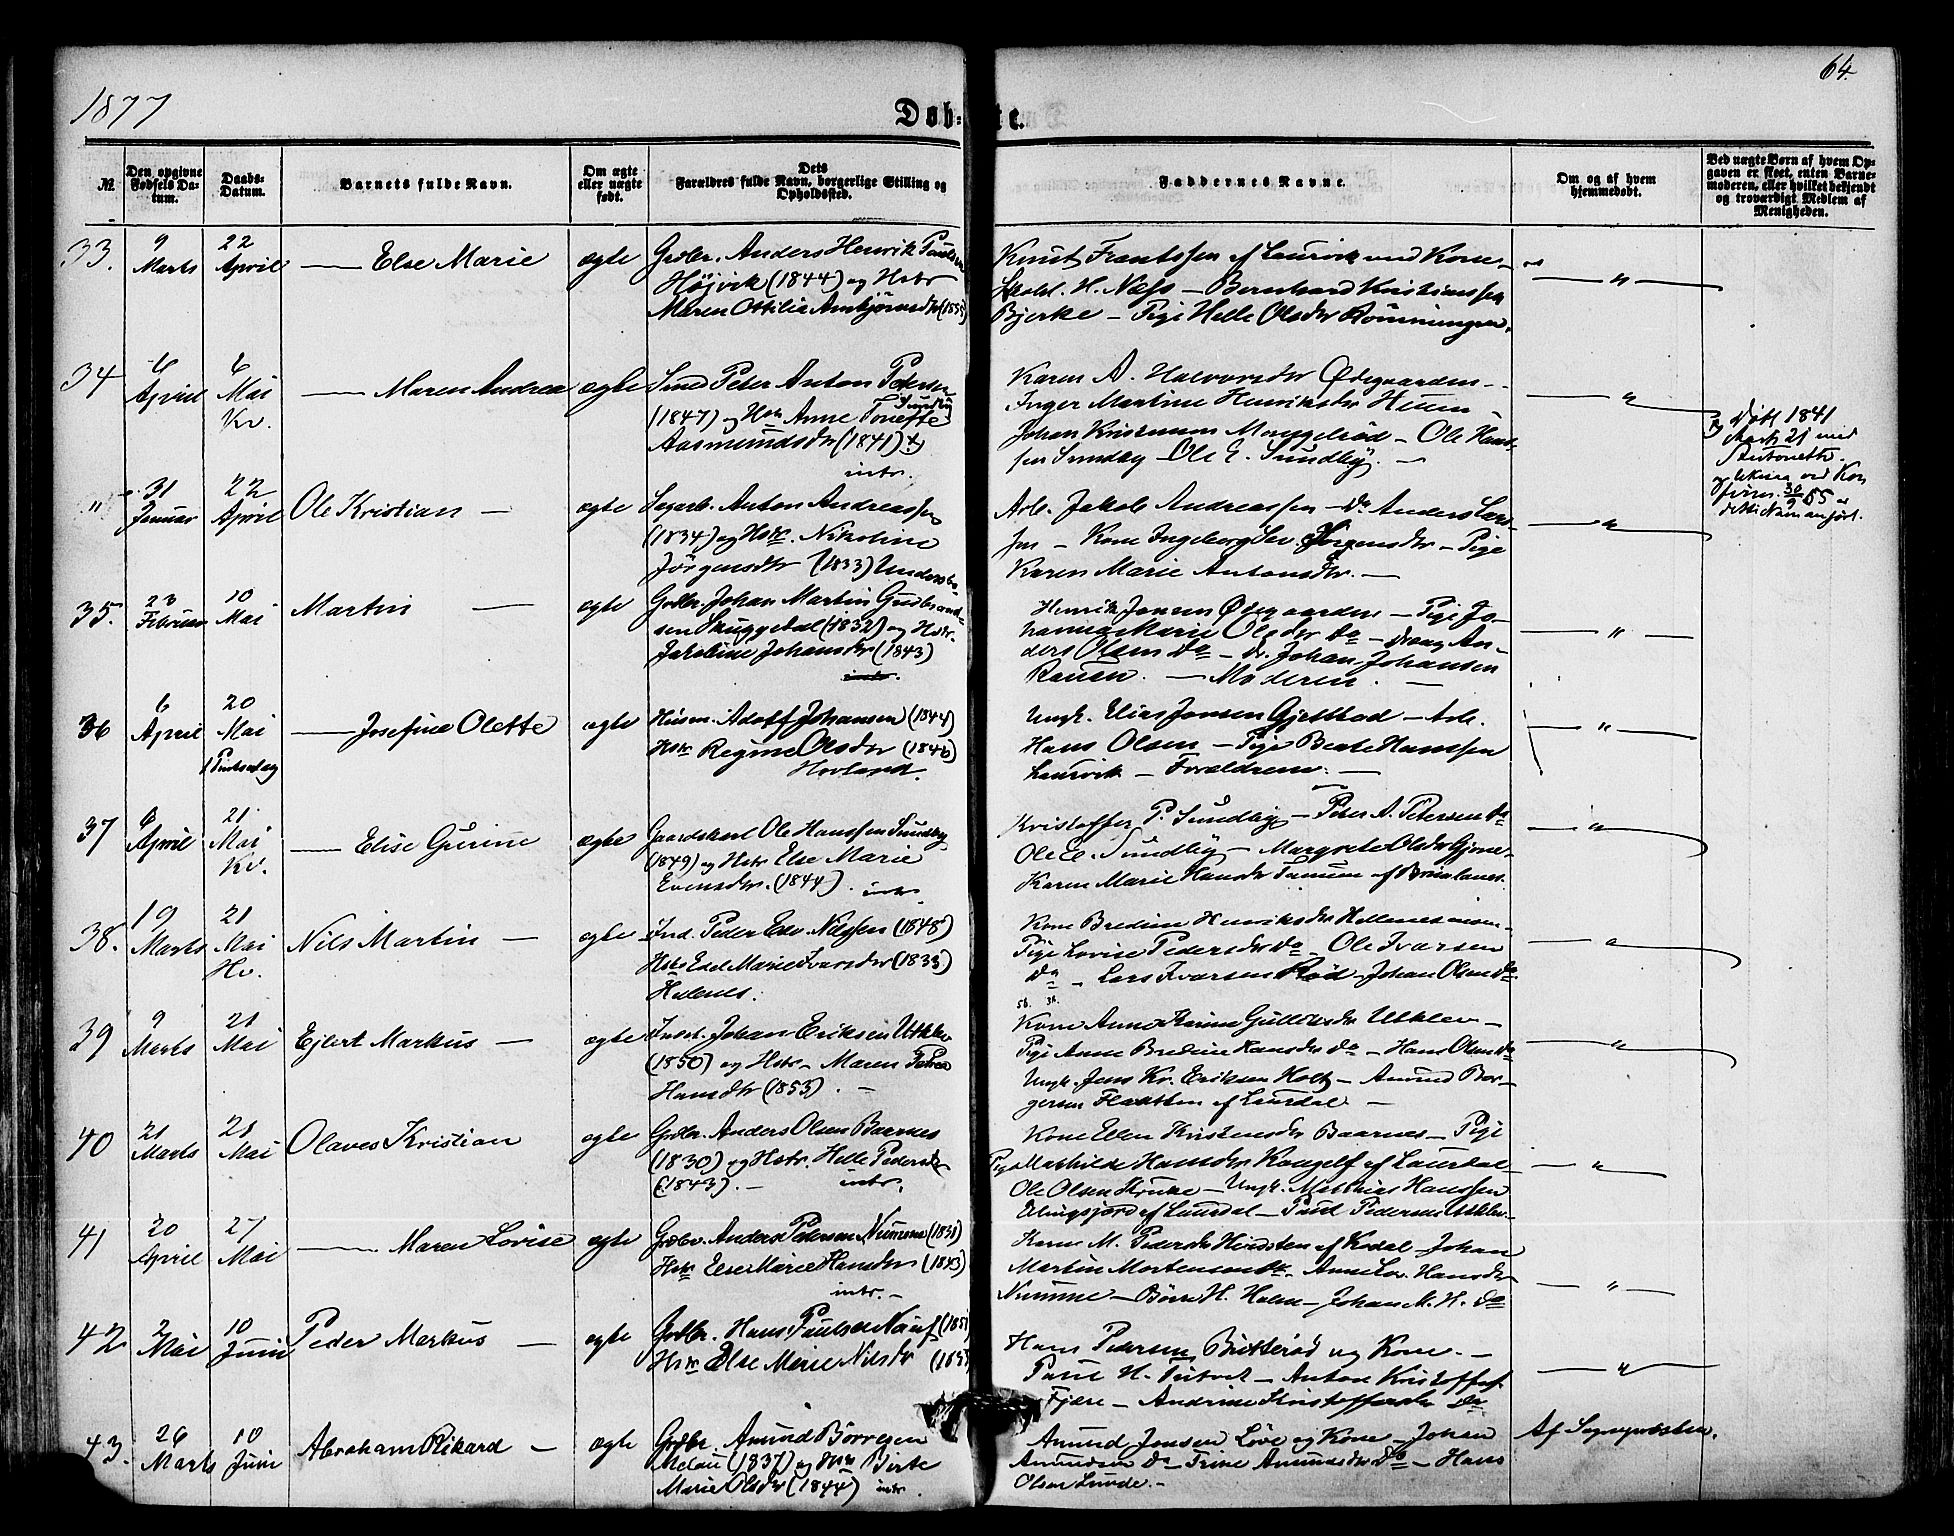 64.
1877
Døb-te.
№
Den opgivne Fødsels Datum.
Daabs-Datum.
Barnets fulde Navn.
Om ægte eller uægte født.
Dets Forældres fulde Navn, borgerlige Stilling og Opholdssted.
Faddernes Navne.
Om og af hvem hjemmedøbt.
Ved uægte Børn af hvem Opgaven er skeet, enten Barnemoderen, eller hvilket bekjendt og troværdigt Medlem af Menigheden.
33. 9 Marts 22 April — Else Marie ægte Grdbr. Anders Henrik
Højvik (1844) og Hstr
Maren Ottilia
Knut Frantssen af Laurvik med Kone —
H. Næss — Bernhard Kristianssen
Bjerke — Pige Helle Olsdr Rønningen.
— " —
34 6 April 6 Mai Kv. — Maren Andrea ægte Smed Peter Anton Pedersen
Sundby
(1847) og Hstr Anne Tonette
Aasmundsdr (1841) x)
intr.
Karen A. Halvorsdr Ødegaarden —
Inger Martine Henriksdr Heum —
Johan Kristensen — Ole Hans-
sen Sundby Ole E. Sundby. —
— " —
x) Døbt 1841
Marts 21 med
Antonette.
" 31 Januar 22 April Ole Kristian — ægte Anton Andreassen
(1834) og Hstr. Nikoline
Jørgensdtr (1833)
Arb. Jakob Andreassen — Do Anders Lars-
sen — Kone Ingeborg Jørgensdr — Pige
Karen Marie Antonsdr. —
— " —
35. 23 Februar 10 Mai Martin — ægte Grdbr. Johan Martin Gudbrand-
sen Skuggedal (1832) og Hstr.
Karoline Johansdr (1843)
intr.
Henrik Jonsen Ødegaarden — Pige Jo-
hanna Marie Olsdr Do — Dreng An-
ders Olsen Do — Dr. Johan Johansen
Rauan. — Moderen. —
— " —
36 6 April 20 Mai 1 Pintsedag — Josefine Olette ægte Husm. Adolf Johansen (1844)
Hstr Regine Olsdr (1846)
Hovland.
Ungk. Elias Jonsen Gjetstad — Arb.
Hans Olsen — Pige Berte Hanssen
Laurvik — Forældrene. —
— " —
37 6 April 21 Mai Kv. — Elise Gurine ægte Gaardskarl Ole Hanssen Sundby
(1849) og Hstr Else Marie
Evensdr. (1844). intr.
Kristoffer P. Sundby — Peter A. Petersen Do
Ole E. Sundby — Margrete Olsdr Gjone —
Karen Marie Hansdr Tanum af Brunlanes.
— " —
38. 19 Marts 21 Mai Hv. Nils Martin — ægte Ind. Peder Edv. Nilssen (1848)
Hstr Else Marie Ivarsdr (1833)
Kone Bredine Henriksdr
Pige Lovise Pedersdr Do — Ole Ivarsen
Do — Lars Ivarsen Rød — Johan Olsen Do
— " —
39 9 Marts 21 Mai Ejlert Markus — ægte Indst. Johan Eriksen Utklev
(1850) og Hstr — Maren Petrea
Hansdtr (1853). —
Kone Anne Karine Gulliksdr Utklev —
Pige Anne Bredine Hansdr Do — Hans Olsen Do
Ungk. Jens Kr. Eriksen Holt — Amund Bor-
gersen Flaatten af Laurdal —
— " —
40 21 Marts 21 Mai Olaves Kristian ægte Grdbr. Anders Olsen Baarnes
(1830) og Hstr. Helle Pedersdr
(1843). — intr.
Kone Ellen Kristensdr Baarnes — Pige
Pige Mathilde Hansdr af Laurdal
Ole Olsen — Ungk. Matthias Hanssen
af Laurdal — Paul Pedersen Utklev —
— " —
41 20 April 27 Mai — Maren Lovise ægte Grdbr. Anders Pedersen Numme (1838)
Hstr Else Marie Hansdr (1843)
intr. —
Karen M. Pedersdr af Kodal — Johan
Martin Mortensen Do. Anne Lov. Hansdr
Numme — Børre H. Holm — Johan M. H. Do
— " —
42 2 Mai 10 Juni Peder Markus — ægte Grdbr. Hans Paulsen
Hstr Else Marie Nilsdr
Hans Pedersen og Kone. —
Paul H. — Anton Kristoffers.
Fjære — Andrine Kristoffersdr Do
— " —
43. 26 Marts 10 Juni Abraham Rikard — ægte Grdbr. Amund Børresen
Melau (1837) og Hstr Berte
Marie Olsdr (1844) intr.
Amund Jensen Løve og Kone — Johan
Amundsen Do — Trine Amundsdr Do — Hans
Olsen Lunde. —
Af Sognepræsten.